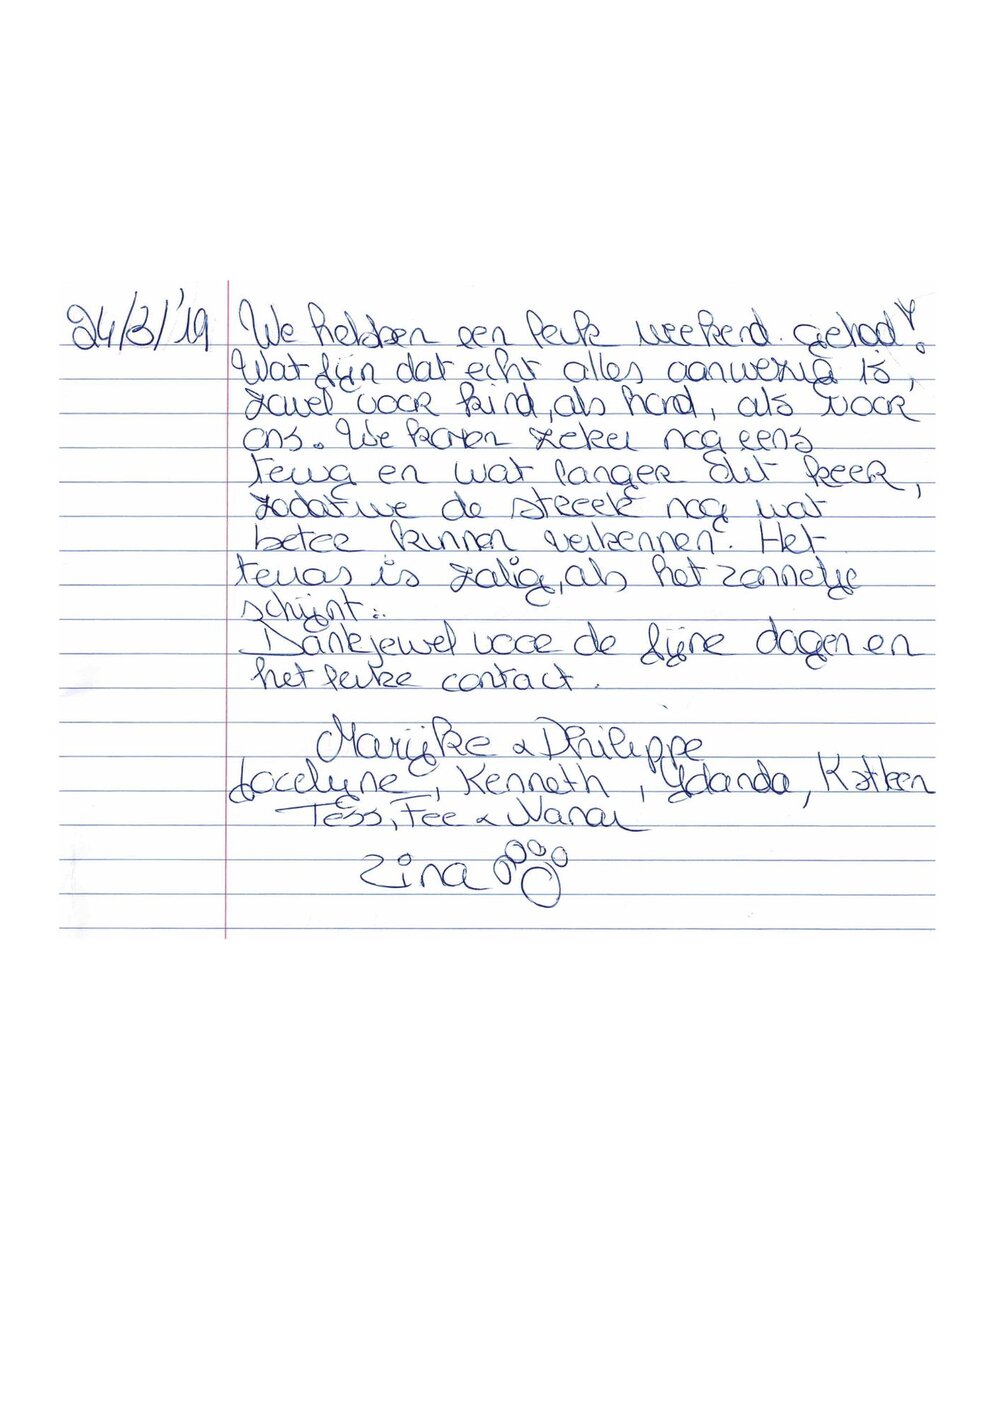 24/3/'19 We hebben een leuk weekend gehad!
Wat fijn dat echt alles aanwezig is,
zowel voor kind, als hond, als voor
ons. We komen zeker nog eens
terug en wat langer dit keer,
zodat we de streek nog wat
beter kunnen verkennen. Het
terras is zalig, als het zonnetje
schijnt.
Dankjewel voor de fijne dagen en
het leuke contact.
Marijke & Philippe
Jocelyne, Kenneth, Yolanda, Katleen
Tess, Fee &
Zina